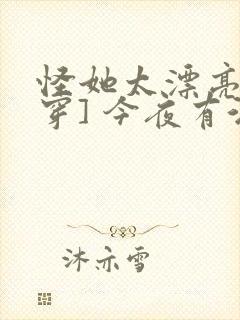 怪她太漂亮
穿] 今夜有
沐亦雪